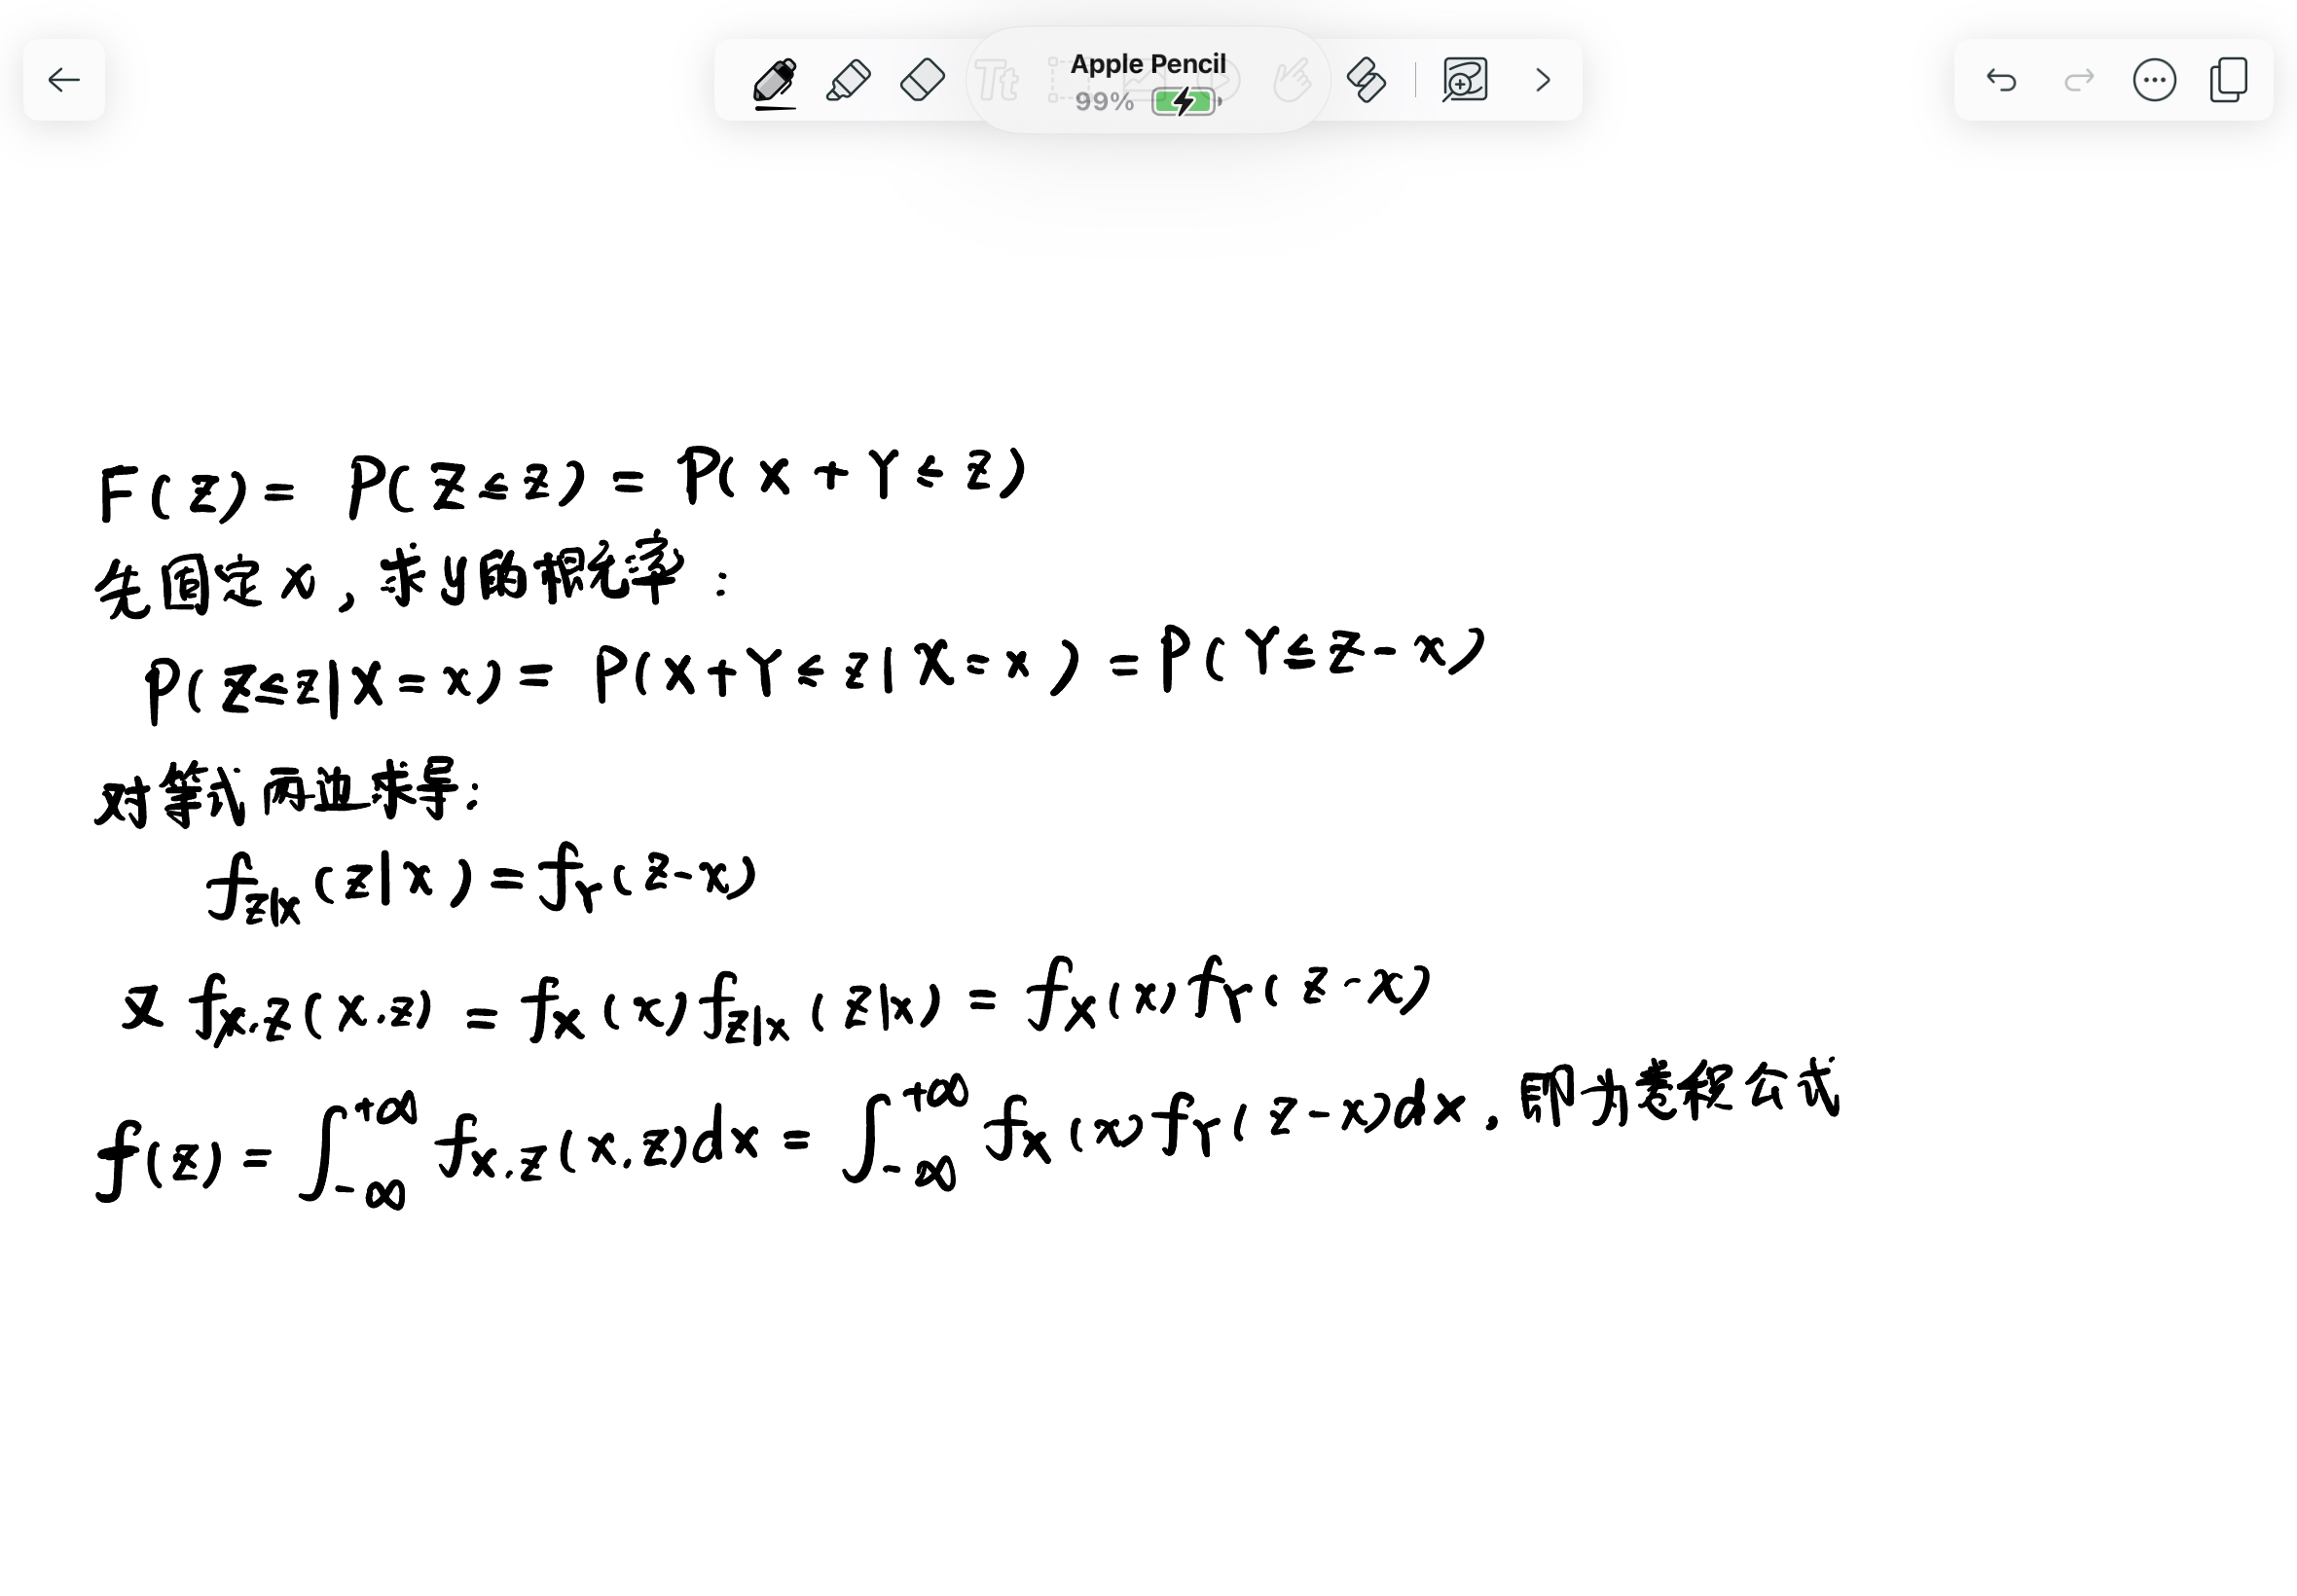 Apple Pencil
99%
F(z) = P(Z≤z) = P(X+Y≤z)
先固定x,求y的概率:
P(Z≤z|X=x) = P(X+Y≤z|X=x) = P(Y≤z-x)
对等式两边求导:
f_{Z|X}(z|x) = f_Y(z-x)
又 f_{X.Z}(x.z) = f_X(x)f_{Z|X}(z|x) = f_X(x)f_Y(z-x)
f(z) = ∫_{-∞}^{+∞} f_{X.Z}(x.z)dx = ∫_{-∞}^{+∞} f_X(x)f_Y(z-x)dx,即为卷积公式